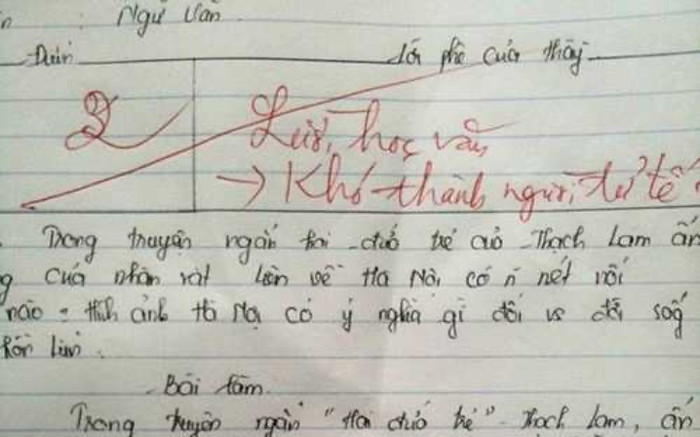 : Ngữ Văn
Điểm Lời phê của thầy
2 Lười học văn
→ Khó thành người tử tế
Trong truyện ngắn hai đứa trẻ của Thạch Lam ấn
của nhân vật Liên về Hà Nội có n nét nổi
nào = Hình ảnh Hà Nội có ý nghĩa gì đối vs đời sống
Liên.
Bài làm
Trong truyện ngắn "Hai đứa trẻ" - Thạch Lam, ấn